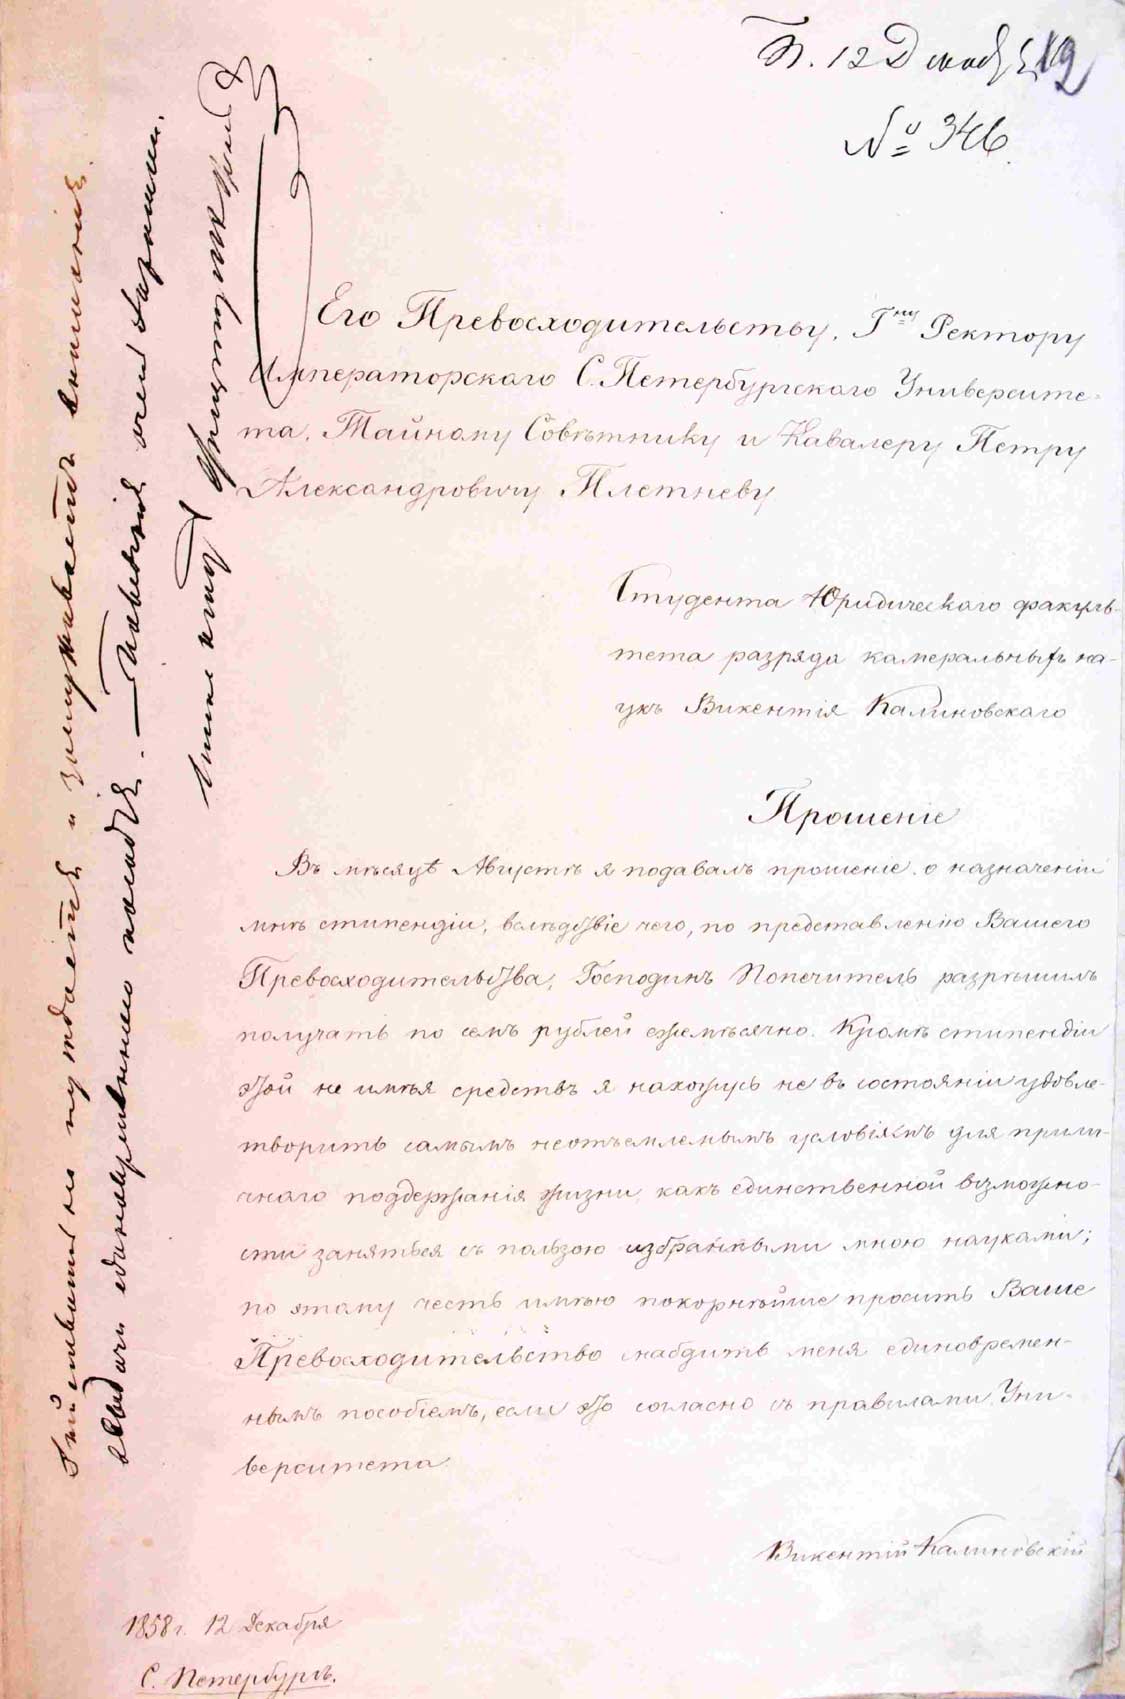 П. 12 Декабр. 19
№ 346.
Его Превосходительству, Гну Ректору
Императорскаго С.Петербургскаго Университе-
та, Тайному Совѣтнику и Кавалеру Петру
Александровичу Плетневу
Студента Юридическаго факуль-
тета разряда камеральныхъ на-
укъ Викентія Калиновскаго
Прошеніе
Въ мѣсяцѣ Августѣ я подавалъ прошеніе о назначеніи
мнѣ стипендіи, вслѣдствіе чего, по представленію Вашего
Превосходительства, Господинъ Попечитель разрѣшилъ
получать по семь рублей ежемѣсячно. Кромѣ стипендіи
этой не имѣя средствъ я нахожусь не въ состояніи удовле-
творить самымъ неотъемлемымъ условіямъ для прили-
чнаго поддержанія жизни, какъ единственной возможно-
сти заняться съ пользою избранными мною науками;
по этому честь имѣю покорнѣйше просить Ваше
Превосходительство снабдить меня единовремен-
нымъ пособіемъ, если это согласно съ правилами Уни-
верситета.
Викентій Калиновскій
1858 г. 12 Декабря
С. Петербургъ.
Дѣйствительно нуждается и заслуживаетъ вниманія
выдачи единовременно пособія. — Поведенія очень хорошаго.